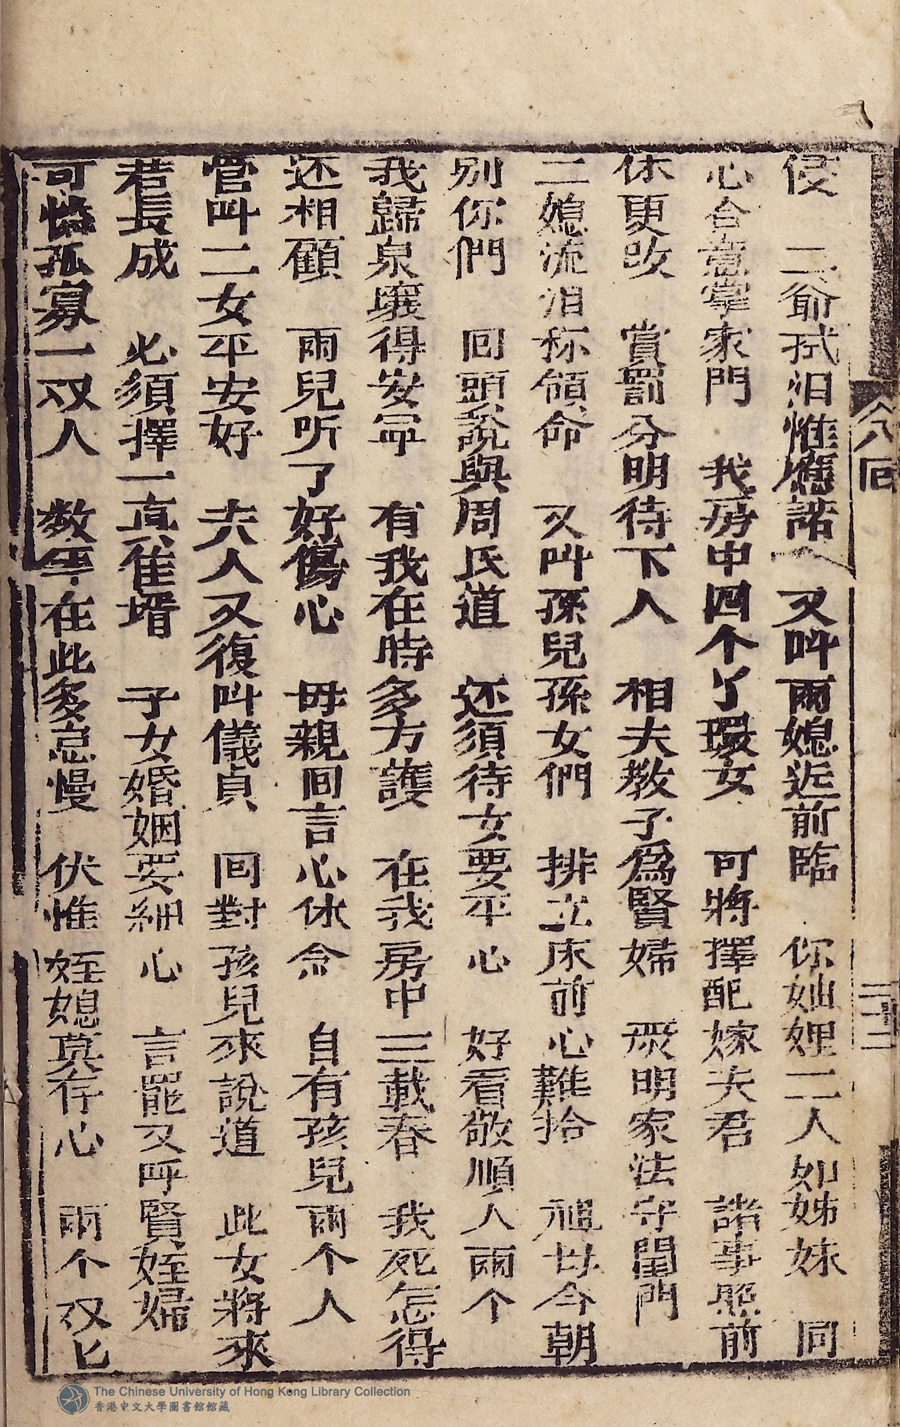 侵　二爺拭泪惟應諾　又呌兩媳近前臨　你妯娌二人如姊妹　同
心合意掌家門　我房中四个丫環女　可將擇配嫁夫君　諸事照前
休更改　賞罰分明待下人　相夫教子爲賢婦　嚴明家法守閨門
二媳流泪称領命　又呌孫兒孫女們　排立床前心難捨　祖母今朝
別你們　回頭說與周氏道　还須待女要平心　好看敬順人兩个
我歸泉壤得安寜　有我在時多方護　在我房中三載春　我死怎得
还相顧　兩兒听了好傷心　母親囬言心休念　自有孩兒兩个人
管呌二女平安好　夫人又復呌儀貞　回對孩兒來說道　此女將來
若長成　必須擇一眞佳壻　子女婚姻要細心　言罷又呼賢姪婦
可憐孤寡一双人　数年在此多怠慢　伏惟姪媳莫存心　兩个双匕
八囬
二十二
The Chinese University of Hong Kong Library Collection
香港中文大學圖書館館藏